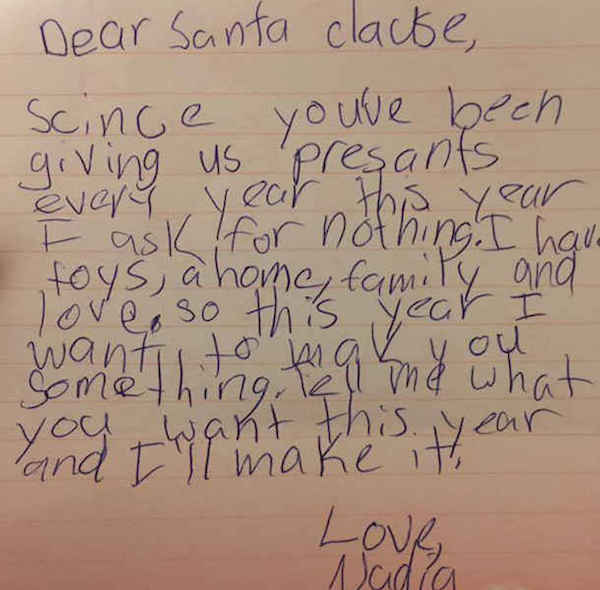 Dear Santa clause,
Scince youve been
giving us presants
every year this year
I ask for nothing. I hav
toys, a home, family and
love. so this year I
want to mak you
something. Tell me what
you want this year
and I'll make it.
Love,
Nadia